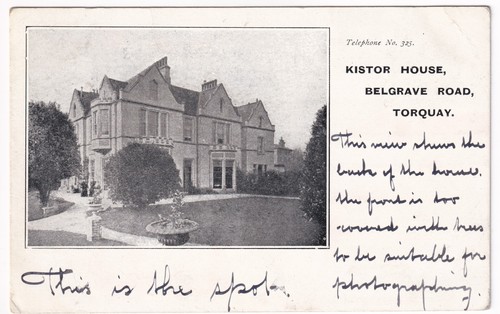 Telephone No. 325.
KISTOR HOUSE,
BELGRAVE ROAD,
TORQUAY.
This view shews the
back of the house.
the front is too
covered with trees
to be suitable for
photographing.
This is the spot.